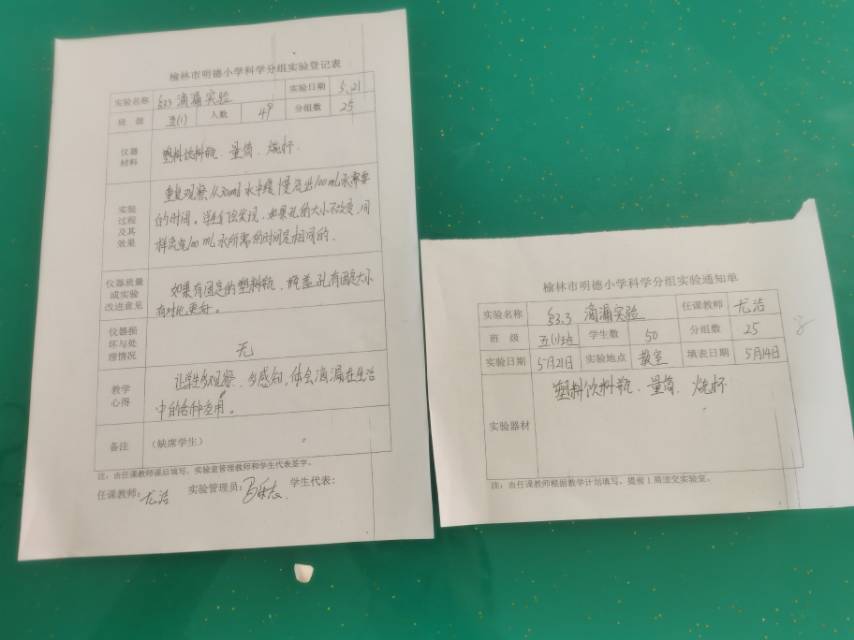 榆林市明德小学科学分组实验登记表
实验名称 §3.3 滴漏实验 实验日期 5.21
班 级 五(1) 人数 49 分组数 25
仪器材料 塑料饮料瓶、量筒、烧杯.
实验过程及其效果
重复观察从300ml水中慢慢流出100ml水需要
的时间。学生们会发现,如果孔的大小不改变,同
样流完100ml水所需的时间是相同的.
仪器质量或实验改进意见
如果有固定的塑料瓶,瓶盖孔有固定大小
有对比更好。
仪器损坏与处理情况 无
教学心得
让学生多观察,多感知,体会滴漏在生活
中的各种应用。
备注 (缺席学生)
注:由任课教师课后填写,实验室管理教师和学生代表签字。
任课教师:尤洁 实验管理员: 学生代表:
榆林市明德小学科学分组实验通知单
实验名称 §3.3 滴漏实验 任课教师 尤洁
班 级 五(1)班 学生数 50 分组数 25
实验日期 5月21日 实验地点 教室 填表日期 5月14日
实验器材 塑料饮料瓶、量筒、烧杯
注:由任课教师根据教学计划填写,提前1周送交实验室。